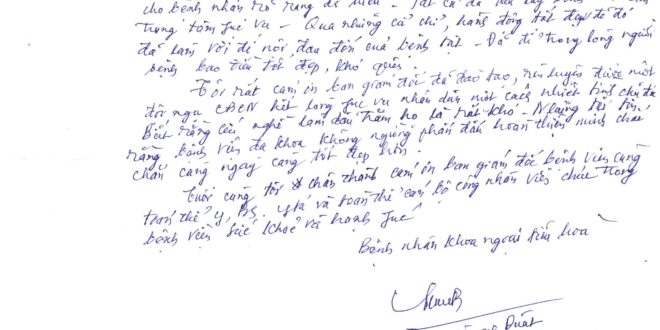 cho bệnh nhân rõ ràng dễ hiểu - Tất cả đã
trọng tâm fục vụ - Qua những cử chỉ, hành động tốt đẹp đó đó
đã làm vơi đi nỗi đau đớn của bệnh tật - Để đi trong lòng người
bệnh bao tiền tốt đẹp, khó quên.
Tôi rất cảm ơn ban giám đốc đã đào tạo, rèn luyện được một
đội ngũ CBCN hết lòng fục vụ nhân dân một cách nhiệt tình chu đáo
Biết rằng cái nghề làm dâu trăm họ là rất khó - Nhưng tôi tin
rằng bệnh viện đa khoa không ngừng phấn đấu hoàn thiện mình chắc
chắn càng ngày càng tốt đẹp hơn.
Cuối cùng tôi chân thành cảm ơn ban giám đốc bệnh viện cùng
toàn thể y, BS, y tá và toàn thể cán bộ công nhân viên chức trong
bệnh viện sức khoẻ và hạnh fúc
Bệnh nhân khoa ngoại tiêu hoá
Duật